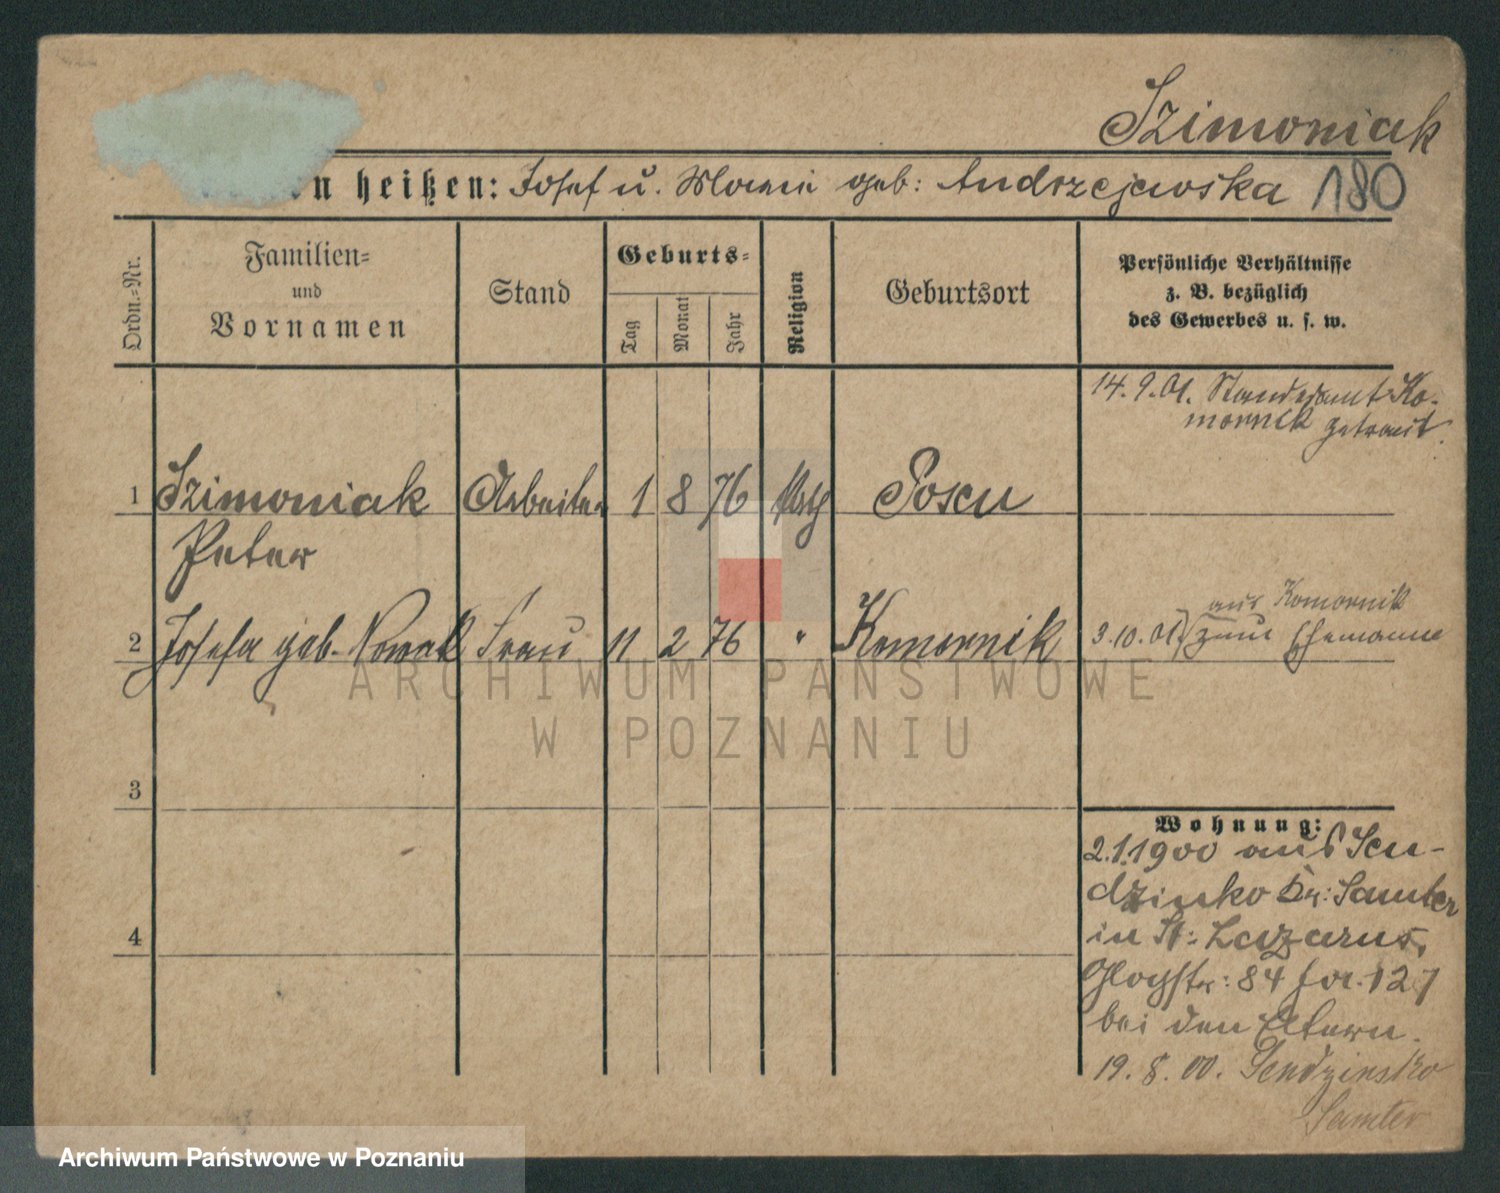 Szimoniak
n heißen: Josef u. Marie geb: Andrzejewska 180
Ordn.-Nr.
Familien-
und
Vornamen
Stand
Geburts-
Tag
Monat
Jahr
Religion
Geburtsort
Persönliche Verhältnisse
z. B. bezüglich
des Gewerbes u. s. w.
14. 9. 01. Standesamt Ko-
mornik getraut.
1 Szimoniak Arbeiter 1 8 76 Posen
Peter
2 Josefa geb. Nowak Frau 11 2 76 " Komornik
aus Komornik
3. 10. 01 zum Ehemanne
3
4
Wohnung:
2.1.1900 aus Sen-
dzinko Kr: Samter
in St: Lazarus,
Glogstr: 84 127
bei den Eltern.
19. 8. 00. Sendzinsko
Samter
ARCHIWUM PAŃSTWOWE
W POZNANIU
Archiwum Państwowe w Poznaniu